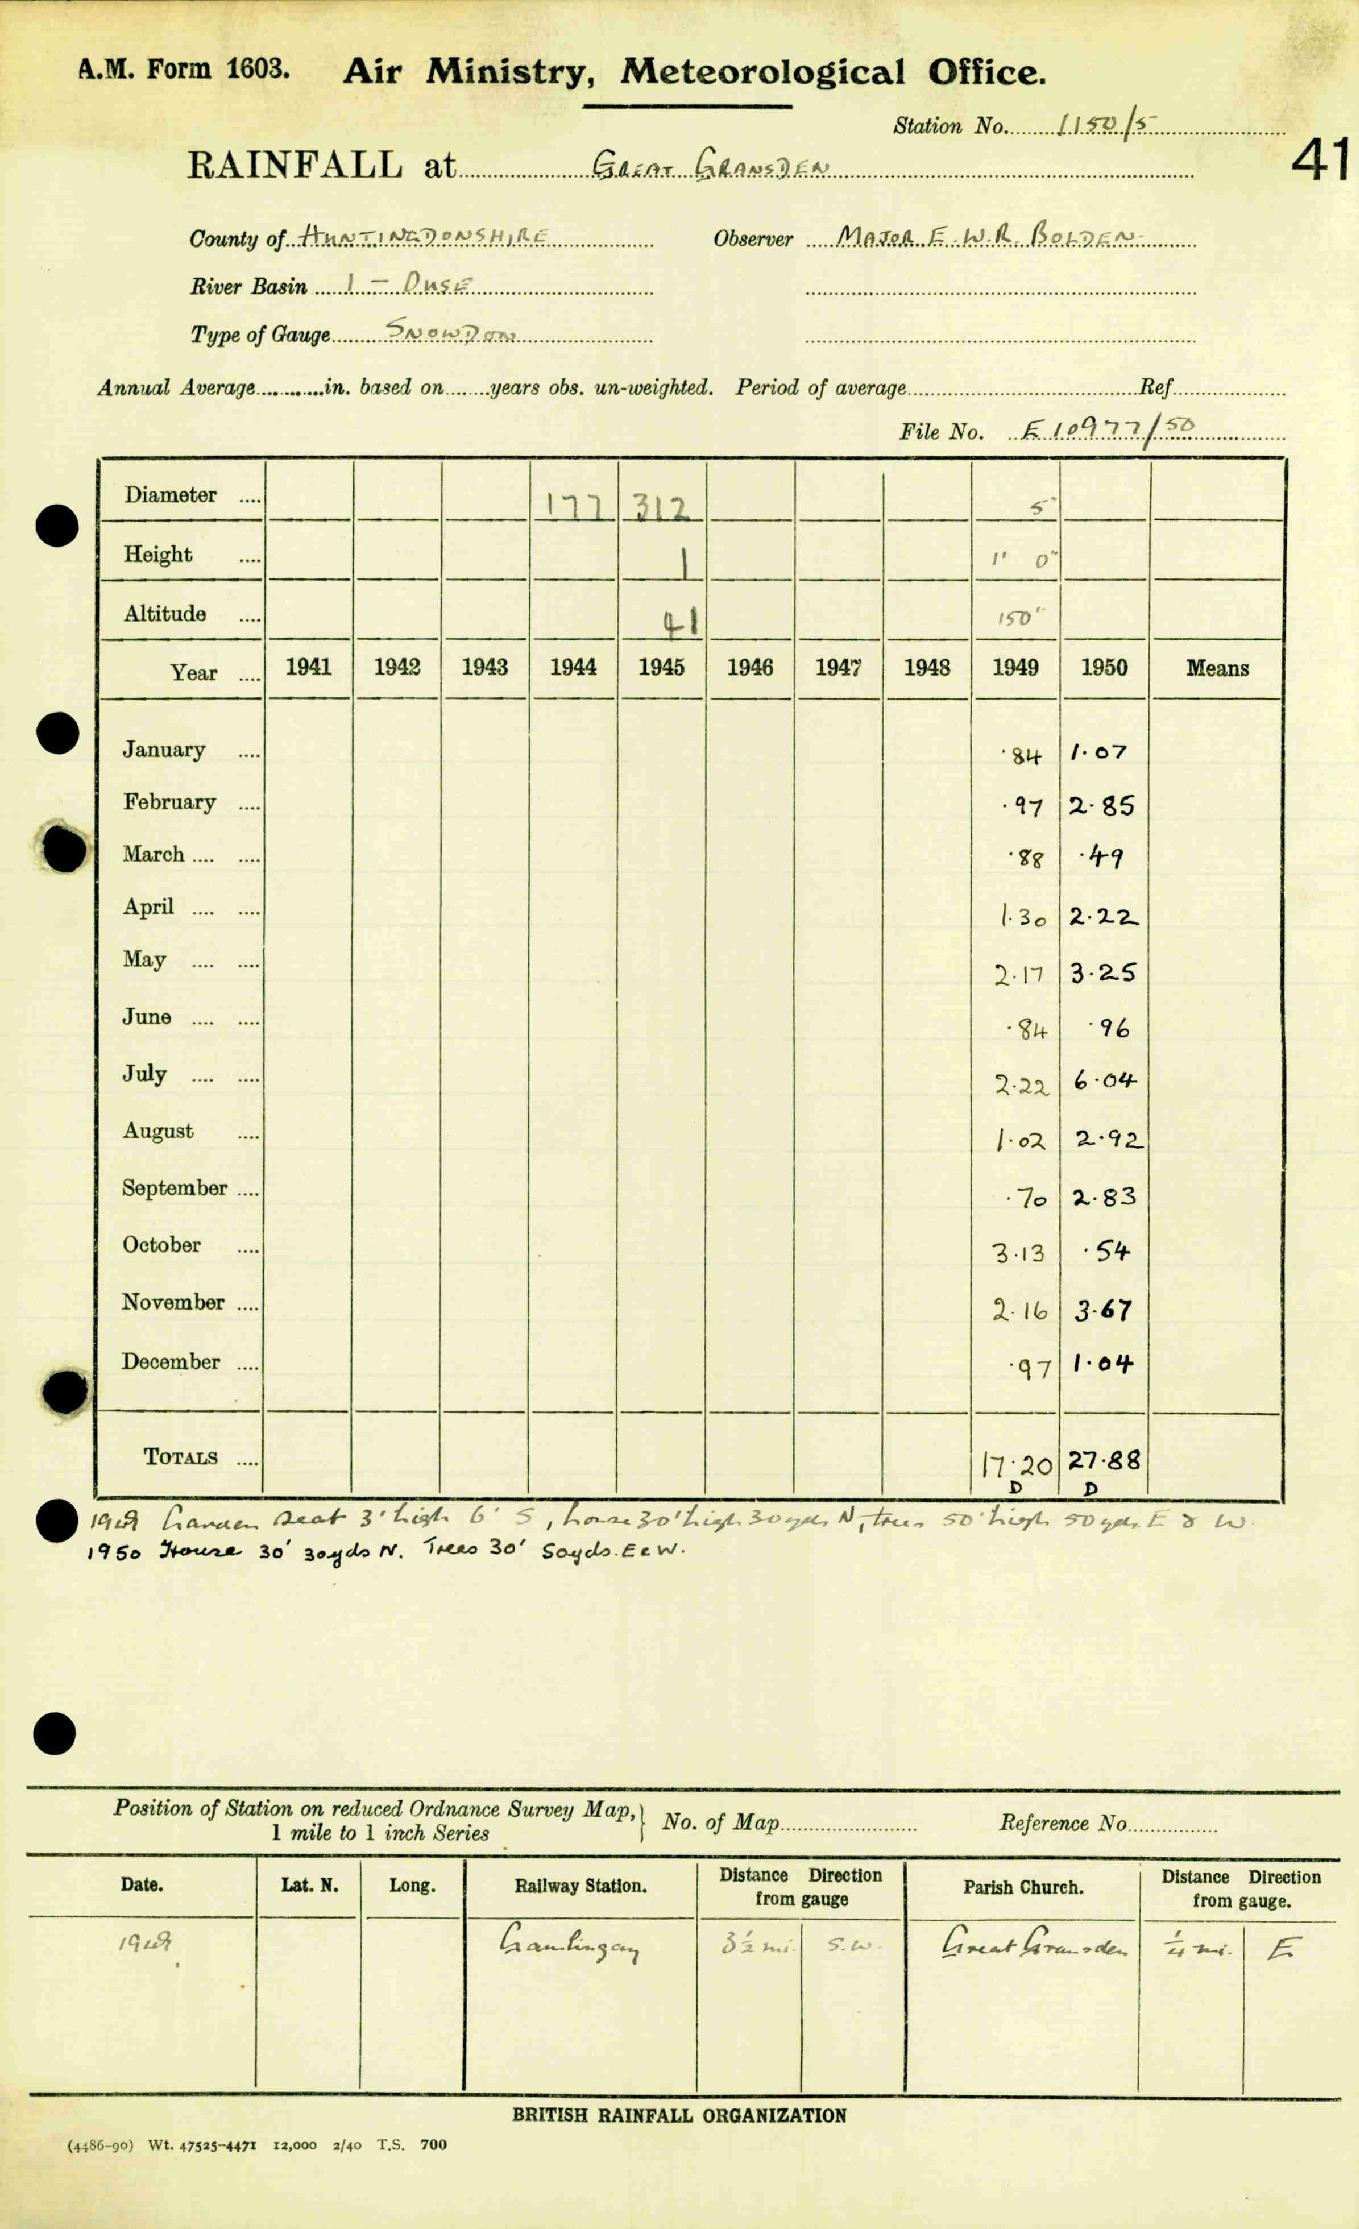 A.M. Form 1603. Air Ministry, Meteorological Office.
Station No. 1150/5
41
RAINFALL at GREAT GRANSDEN
County of HUNTINGDONSHIRE Observer MAJOR E.W.R. BOLDEN
River Basin 1 - OUSE
Type of Gauge SNOWDON
Annual Average............in. based on........years obs. un-weighted. Period of average........Ref........
File No. E10977/50
Diameter .... 177 312 5"
Height .... 1 1' 0"
Altitude .... 41 150'
Year .... 1941 1942 1943 1944 1945 1946 1947 1948 1949 1950 Means
January .... ·84 1·07
February .... ·97 2·85
March .... .... ·88 ·49
April .... .... 1·30 2·22
May .... .... 2·17 3·25
June .... .... ·84 ·96
July .... .... 2·22 6·04
August .... 1·02 2·92
September .... ·70 2·83
October .... 3·13 ·54
November .... 2·16 3·67
December .... ·97 1·04
TOTALS .... 17·20 27·88
D D
Garden seat 3' high 6' S, house 30' high 30 yds N, trees 50' high 50 yds E & W.
1950 House 30' 30yds N. Trees 30' 50yds. E & W.
Position of Station on reduced Ordnance Survey Map, } No. of Map........ Reference No........
1 mile to 1 inch Series
Date. Lat. N. Long. Railway Station. Distance from gauge Direction Parish Church. Distance from gauge. Direction
Gamlingay 3½ mi. S.W. Great Gransden ¼ mi. E
BRITISH RAINFALL ORGANIZATION
(4486-90) Wt. 47525-4471 12,000 2/40 T.S. 700